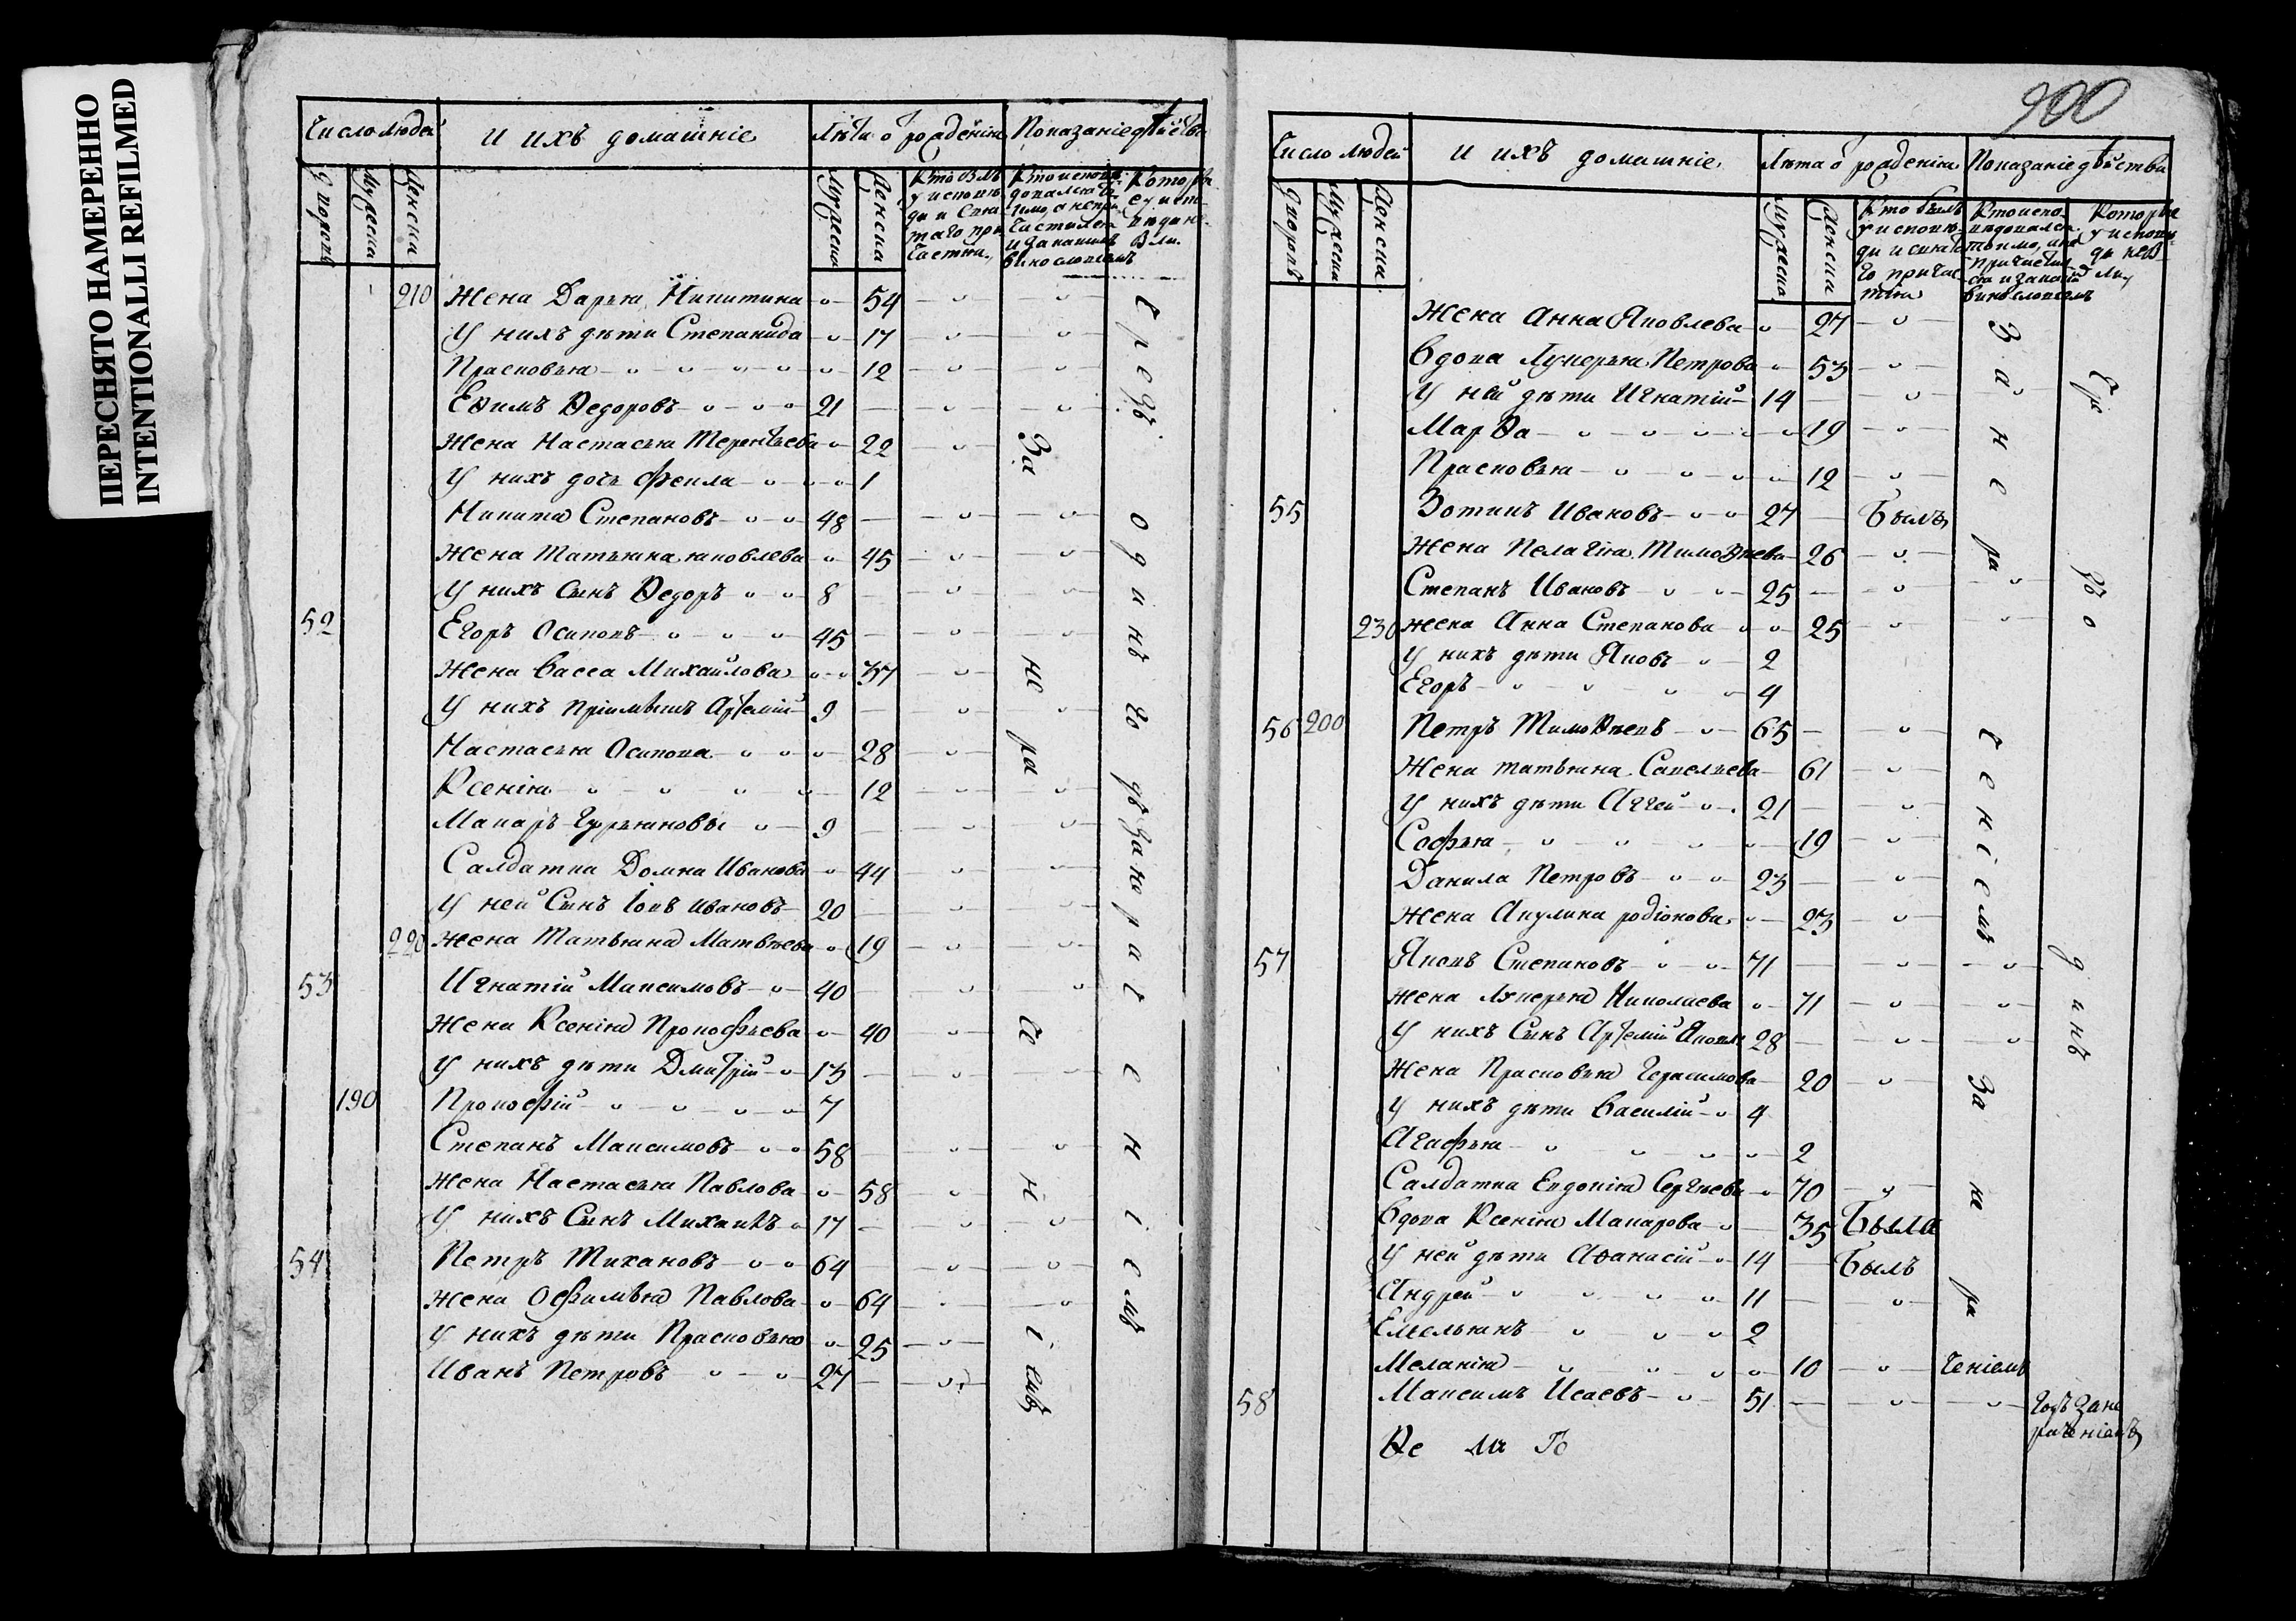 ПЕРЕСНЯТО НАМЕРЕННО
INTENTIONALLI REFILMED
Число людей
и ихъ домашніе
Лѣта ѿ рожденія
Показаніе дѣйства
дворовъ
мужеска
женска
мужеска
женска
Кто былъ
у исповѣ
ди и свя
таго при
частия
Кто испов
довался то
кмо, а непри
частился
и за какимъ
винословіемъ
Которы
е у исп
вѣди не
были
210 Жена Дарья Никитина 54
У нихъ дѣти Степанида 17
Прасковья 12
Ефимъ Ѳедоровъ 21
Жена Настасья Терентьева 22
У нихъ дочь Фекла 1
Никита Степановъ 48
Жена Татьяна яковлева 45
У нихъ Сынъ Ѳедоръ 8
52 Егоръ Осиповъ 45
Жена Васса Михайлова 37
У нихъ пріимышъ Артемій 9
Настасья Осипова 28
Ксенія 12
Макаръ Гурьяновъ 9
Салдатка Домна Иванова 44
У ней Сынъ Іовъ ивановъ 20
220 Жена Татьяна Матвѣева 19
53 Игнатій Максимовъ 40
Жена Ксенія Прокофьева 40
У нихъ дѣти Дмитрій 13
190 Прокофій 7
Степанъ Максимовъ 58
Жена Настасья Павлова 58
У нихъ Сынъ Михаилъ 17
54 Петръ Тихановъ 64
Жена Офимья Павлова 64
У нихъ дѣти Прасковья 25
Иванъ Петровъ 27
За не ра че н і емъ
Средъ одинъ го дъ за не рат е н і емъ
900
Число людей
и ихъ домашніе
Лѣта ѿ рожденія
Показаніе дѣйства
дворовъ
мужеска
женска
мужеска
женска
Кто былъ
у исповѣ
ди и свята
го причас
тія
Кто испо
вѣдовался
токмо, а не
причастил
ся и за какимъ
винословіемъ
Которые
у исповѣ
ди не бы
ли
Жена Анна Яковлева 27
Вдова Лукерья Петрова 53
У ней дѣти Игнатій 14
Марѳа 19
Прасковья 12
55 Зотикъ Ивановъ 27 Былъ
Жена Пелагія Тимоѳѣева 26
Степанъ Ивановъ 25
230 жена Анна Степанова 25
У нихъ дѣти Яковъ 2
Егоръ 4
56 200 Петръ Тимоѳѣевъ 65
Жена татьяна Савельева 61
У нихъ дѣти Аггей 21
Софья 19
Данила Петровъ 23
Жена Акулина родіонова 23
57 Яковъ Степановъ 71
Жена Лукерья Николаева 71
У нихъ Сынъ Артемій Яковл 28
Жена Прасковья Герасимова 20
У нихъ дѣти Василій 4
Агафья 2
Салдатка Евдокія Сергѣева 70
Вдова Ксенія Макарова 35 Была
У ней дѣти Афанасій 14 Былъ
Андрей 11
Емельянъ 2
Меланія 10 ченіемъ
58 Максимъ Исаевъ 51 годъ зане
раченіемъ
За не ра ченіемъ
За не ра
Сре дъ о динъ
Ѳе